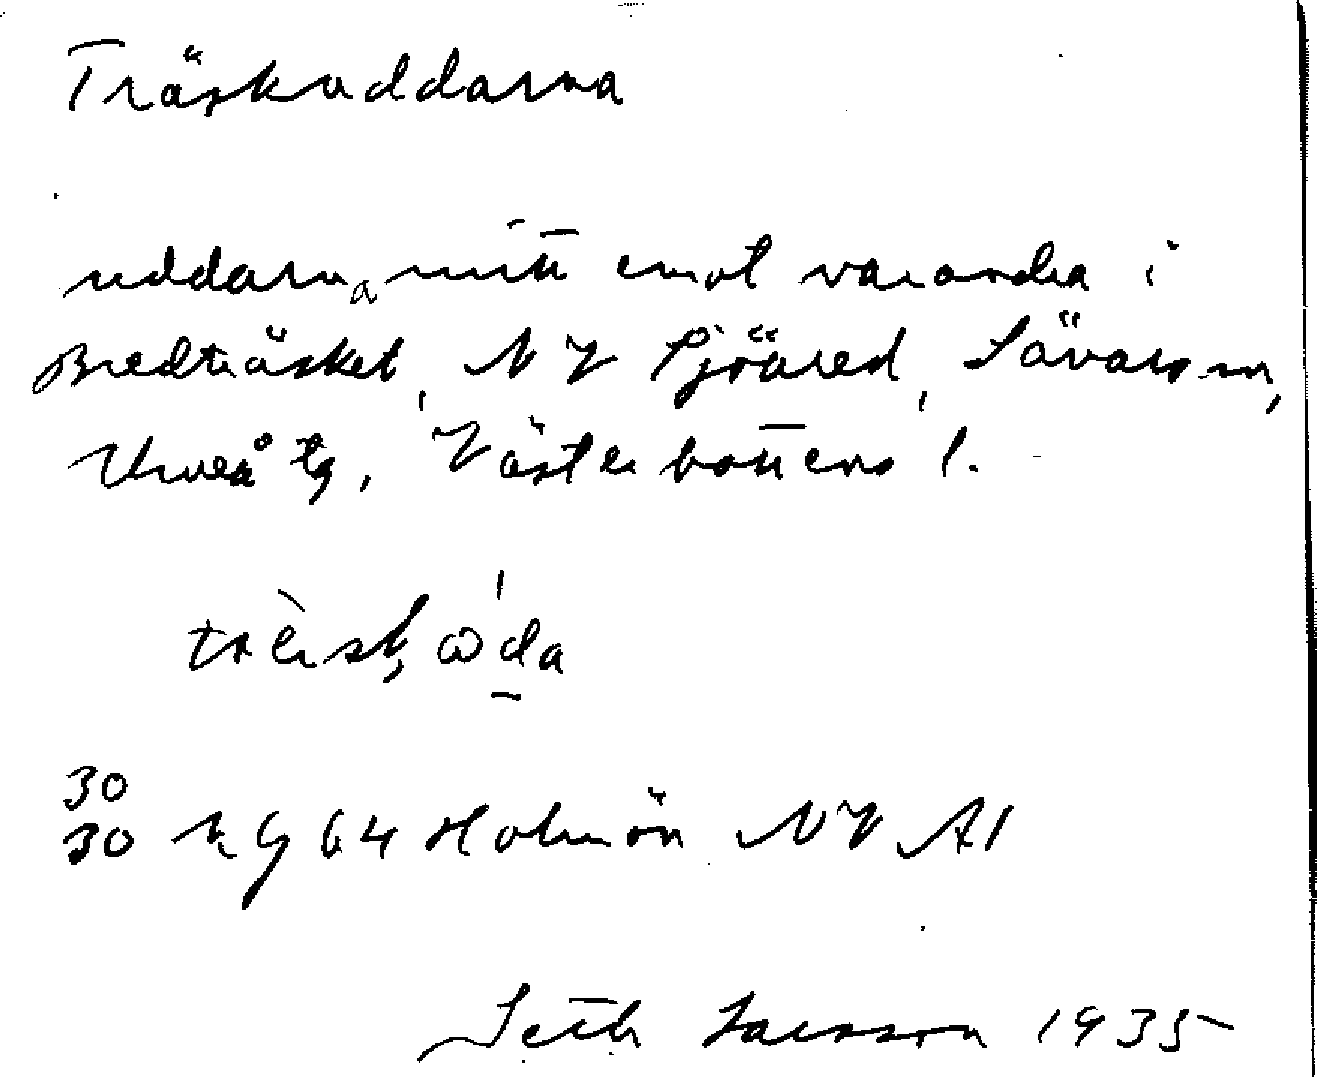 Träskuddarna
uddarna mitt emot varandra i
Bredträsket, NV Sjöäred, Sävars sn,
Umeå tg, Västerbottens l.
30
30 rg 64 Holmön NV A1
Seth Larsson 1935